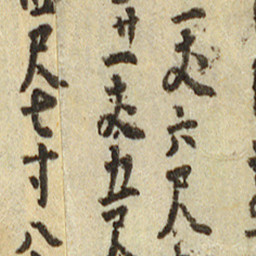 一丈六尺
廿一丈五尺
四尺七寸八